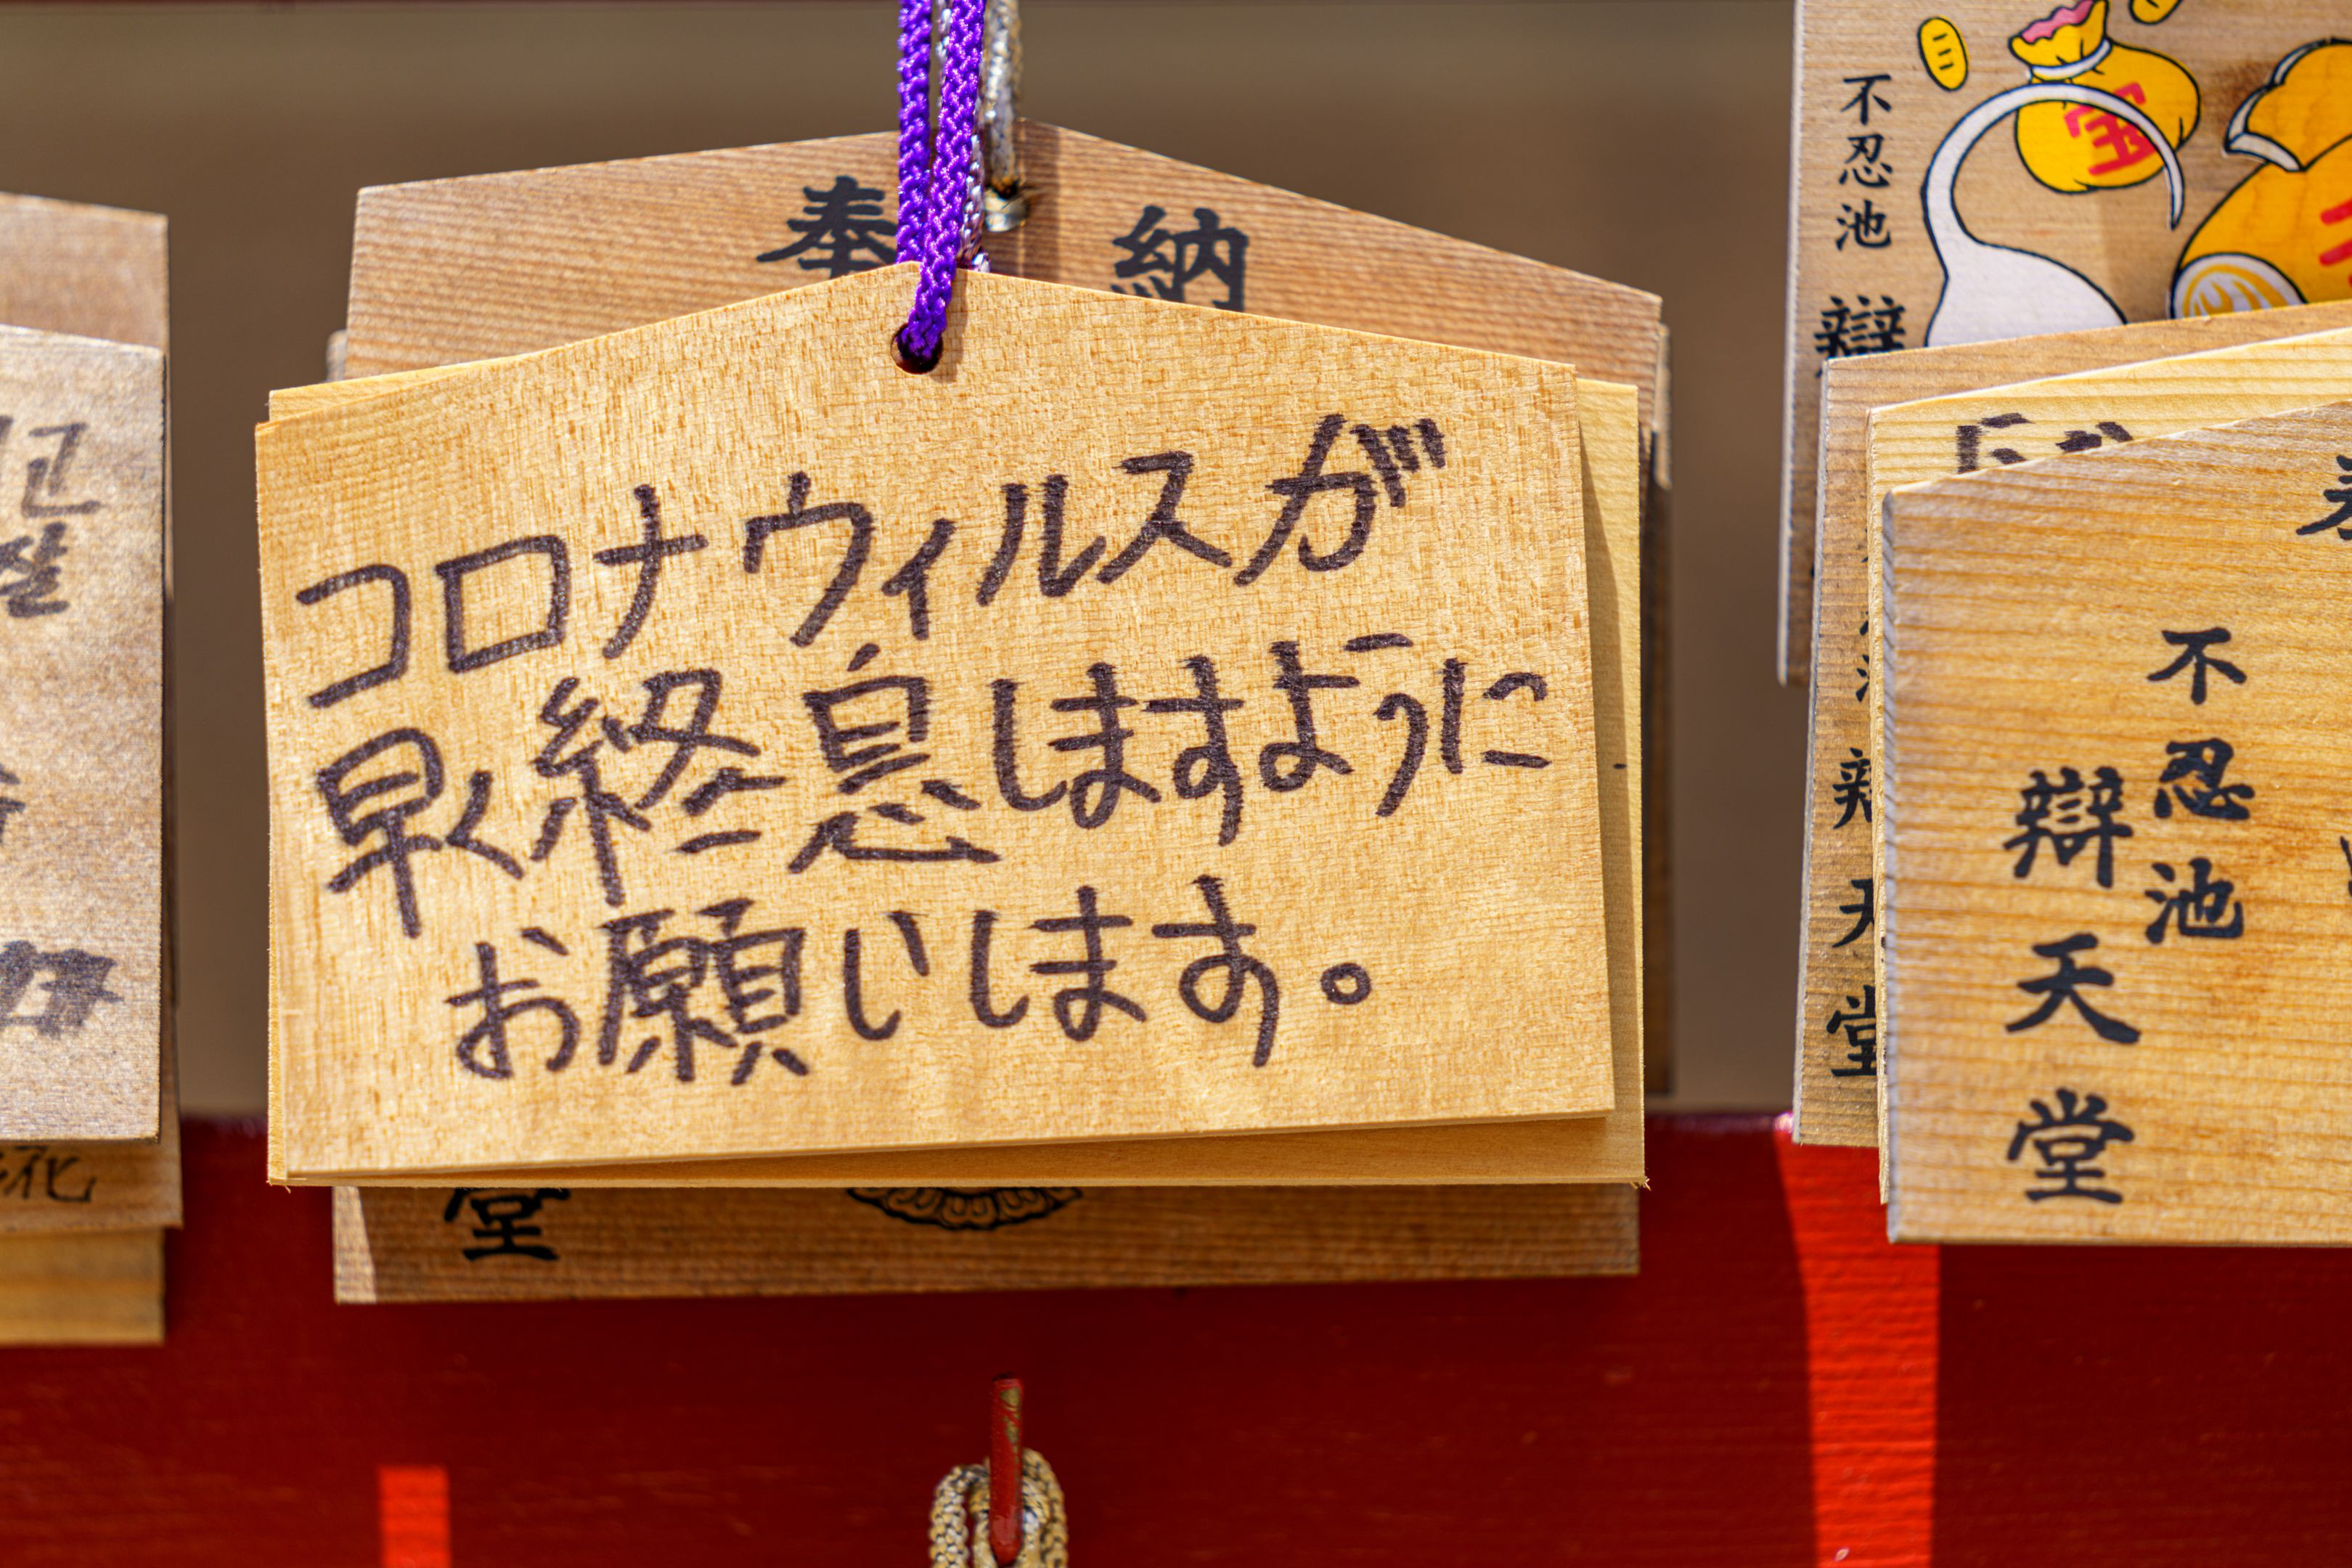 奉納
コロナウィルスが
早く終息しますように
お願いします。
堂
不忍池
辯
宝
不忍池
辯天堂
天
堂
고
잘